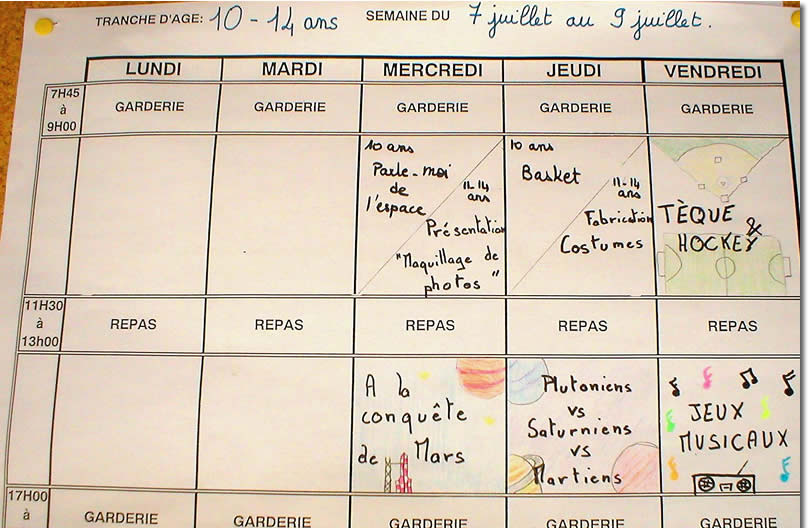 TRANCHE D'AGE: 10 - 14 ans SEMAINE DU 7 juillet au 9 juillet.
LUNDI MARDI MERCREDI JEUDI VENDREDI
7H45 à 9H00 GARDERIE GARDERIE GARDERIE GARDERIE GARDERIE
10 ans
Parle-moi
de
l'espace
11-14
ans
Présentation
"Maquillage de
photos"
10 ans
Basket
11-14
ans
Fabrication
Costumes
TÈQUE
&
HOCKEY
11H30 à 13h00 REPAS REPAS REPAS REPAS REPAS
A la
conquête
de Mars
Plutoniens
vs
Saturniens
vs
Martiens
JEUX
MUSICAUX
17H00 à GARDERIE GARDERIE GARDERIE GARDERIE GARDERIE